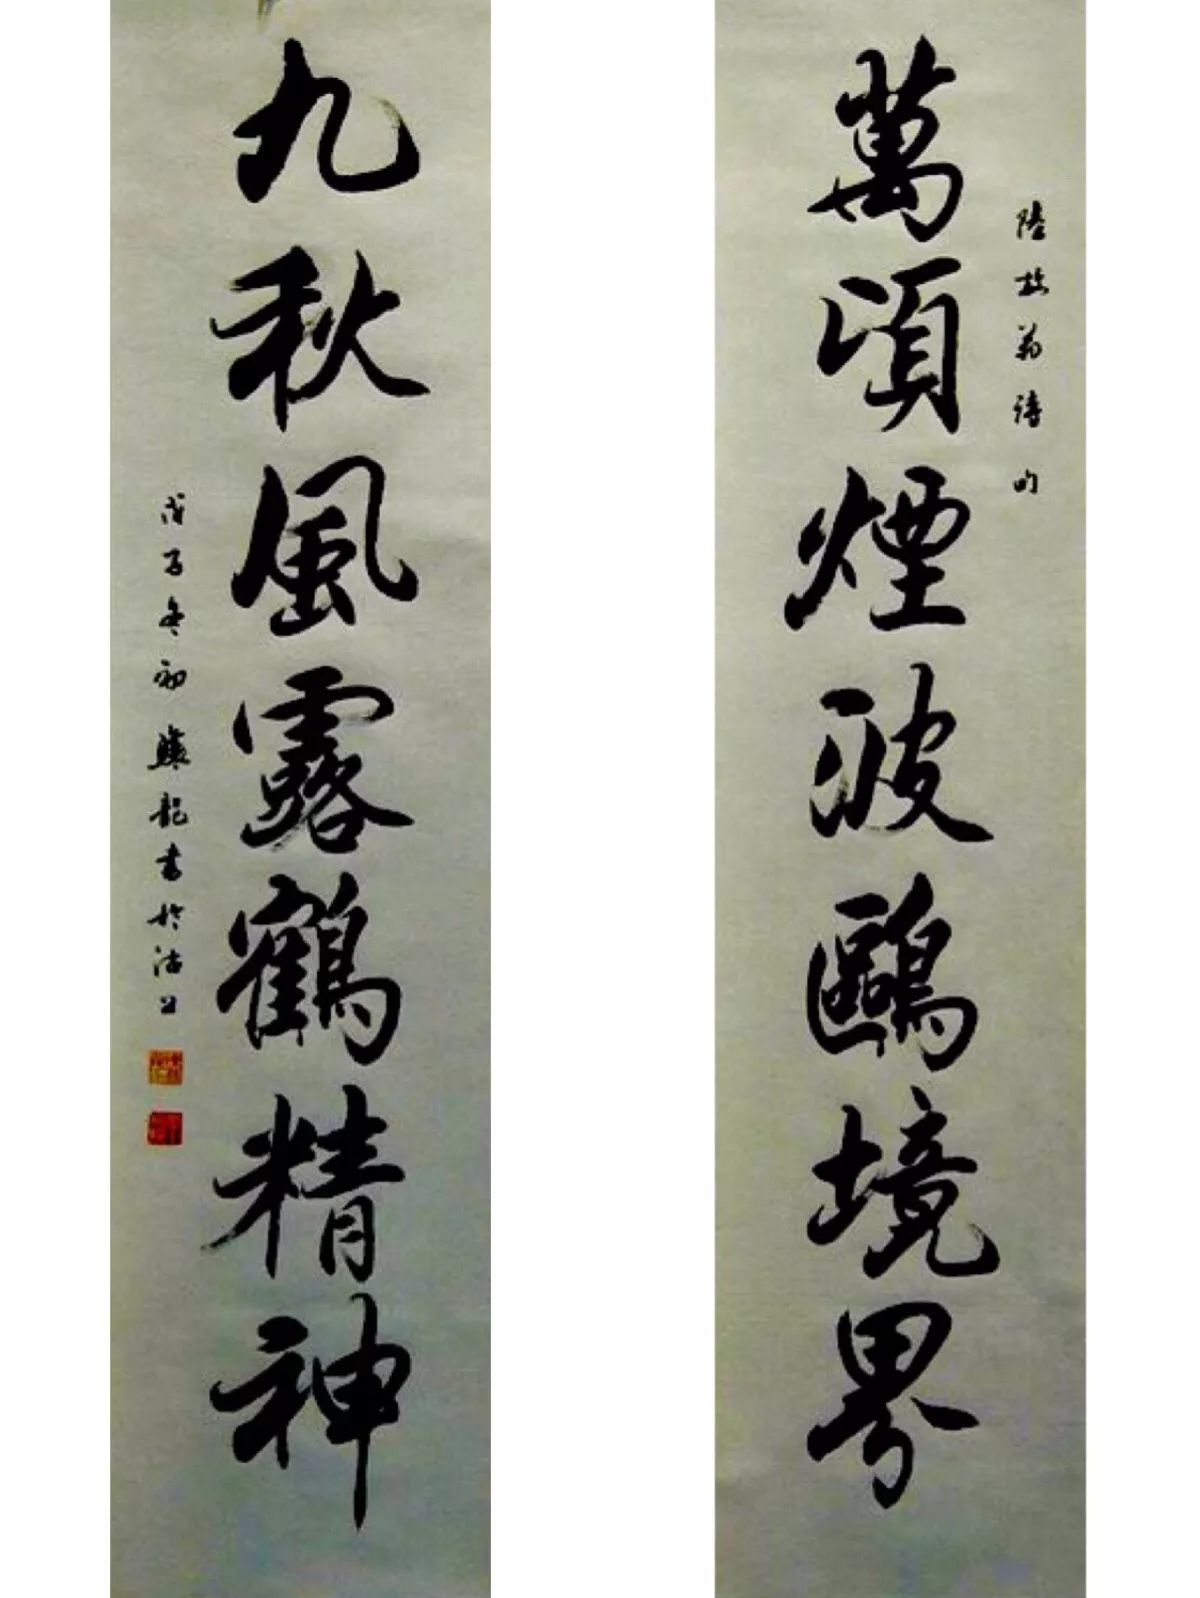 陸放翁詩句
萬頃煙波鷗境界
九秋風露鶴精神
戊子冬初驥龍書於沽上